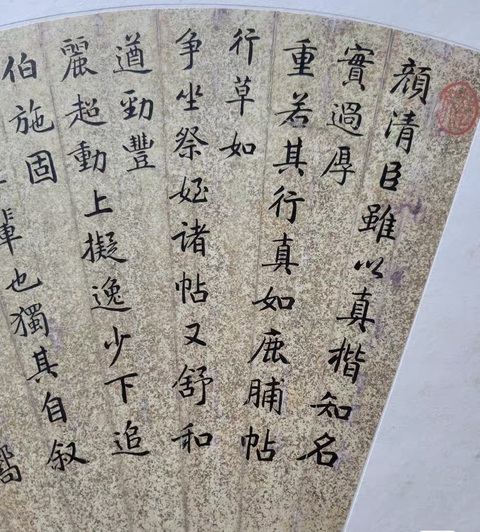 顔清臣雖以真楷知名
實過厚
重若其行真如鹿脯帖
行草如
争坐祭姪諸帖又舒和
遒勁豐
麗超動上擬逸少下追
伯施固
輩也獨其自叙